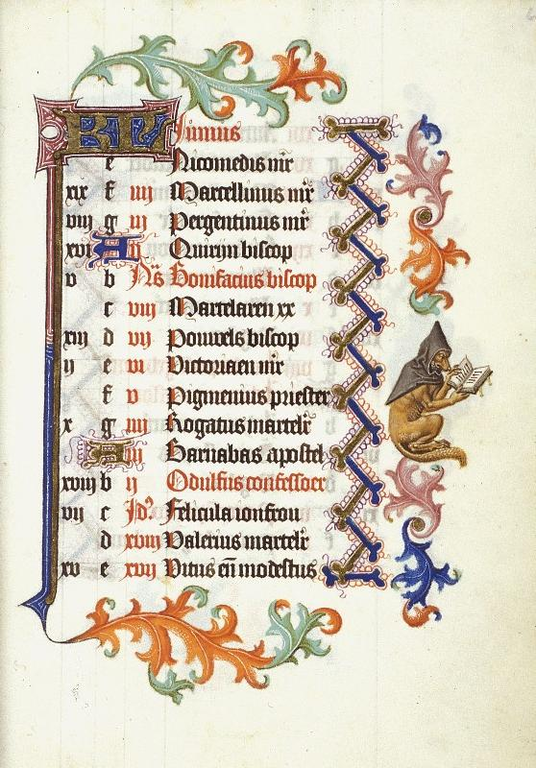 KL Junius
e Nicomedis mr̄
xix f iiij Marcellinus mr̄
viij g iij Pergentinus mr̄
xvi A ij Quirijn biscop
v b Ns̄ Bonifacius biscop
c viij Martelaren xx
xiij d vij Pouwels biscop
ij e vi Victoriaen mr̄
f v Pigmenius priester
x g iiij Rogatus martelr̄
A iij Barnabas apostel
xviij b ij Odulfus confessoer
vij c Jds Felicula ioncfrou
d xviij Valerius martelr̄
xv e xvij Vitus en̄ modestus